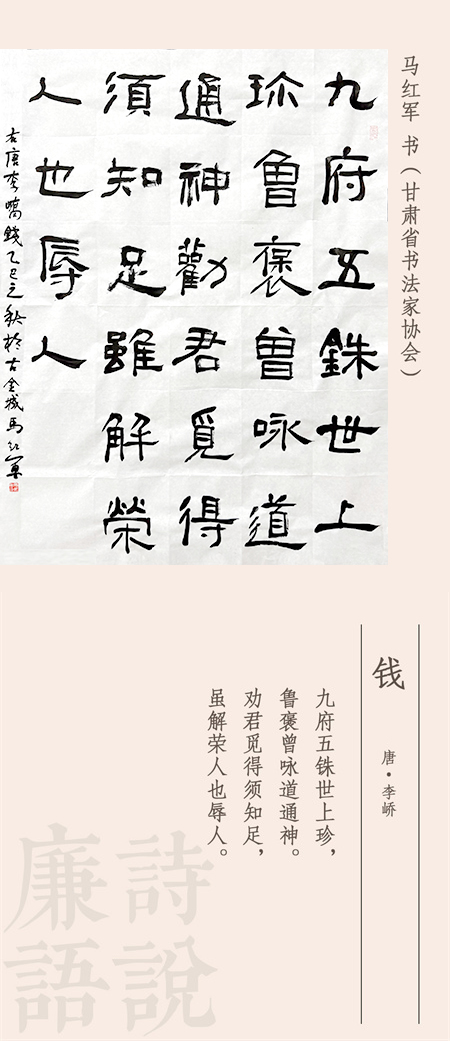 马红军 书（甘肃省书法家协会）
九府五銖世上
珎魯褒曾咏道
通神勸君覓得
須知足雖解榮
人也辱人
右唐李嶠錢乙巳之秋於古金城馬红軍
钱
唐·李峤
九府五铢世上珍，
鲁褒曾咏道通神。
劝君觅得须知足，
虽解荣人也辱人。
詩說
廉語